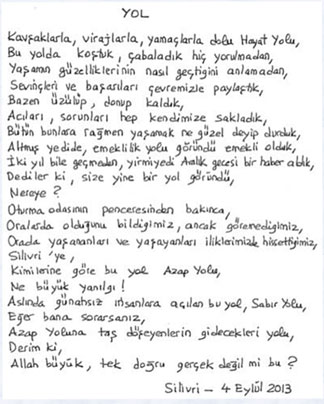 YOL
Kavşaklarla, virajlarla, yamaçlarla dolu Hayat Yolu,
Bu yolda koştuk, çabaladık hiç yorulmadan,
Yaşamın güzelliklerinin nasıl geçtiğini anlamadan,
Sevinçleri ve başarıları çevremizle paylaştık,
Bazen üzülüp, donup kaldık,
Acıları, sorunları hep kendimize sakladık,
Bütün bunlara rağmen yaşamak ne güzel deyip durduk,
Altmış yedide, emeklilik yolu göründü emekli olduk,
İki yıl bile geçmeden, yirmiyedi Aralık gecesi bir haber aldık,
Dediler ki, size yine bir yol göründü,
Nereye?
Oturma odasının penceresinden bakınca,
Oralarda olduğunu bildiğimiz, ancak göremediğimiz,
Orada yaşananları ve yaşayanları iliklerimizle hissettiğimiz,
Silivri'ye,
Kimilerine göre bu yol Azap Yolu,
Ne büyük yanılgı!
Aslında günahsız insanlara açılan bu yol, Sabır Yolu,
Eğer bana sorarsanız,
Azap Yoluna taş döşeyenlerin gidecekleri yolu,
Derim ki,
Allah büyük, tek doğru gerçek değil mi bu?
Silivri - 4 Eylül 2013